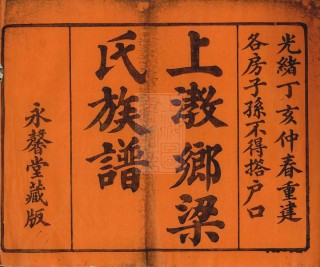 光緒丁亥仲春重建
各房子孫不得搭户口
上滶鄉梁
氏族譜
永馨堂藏版